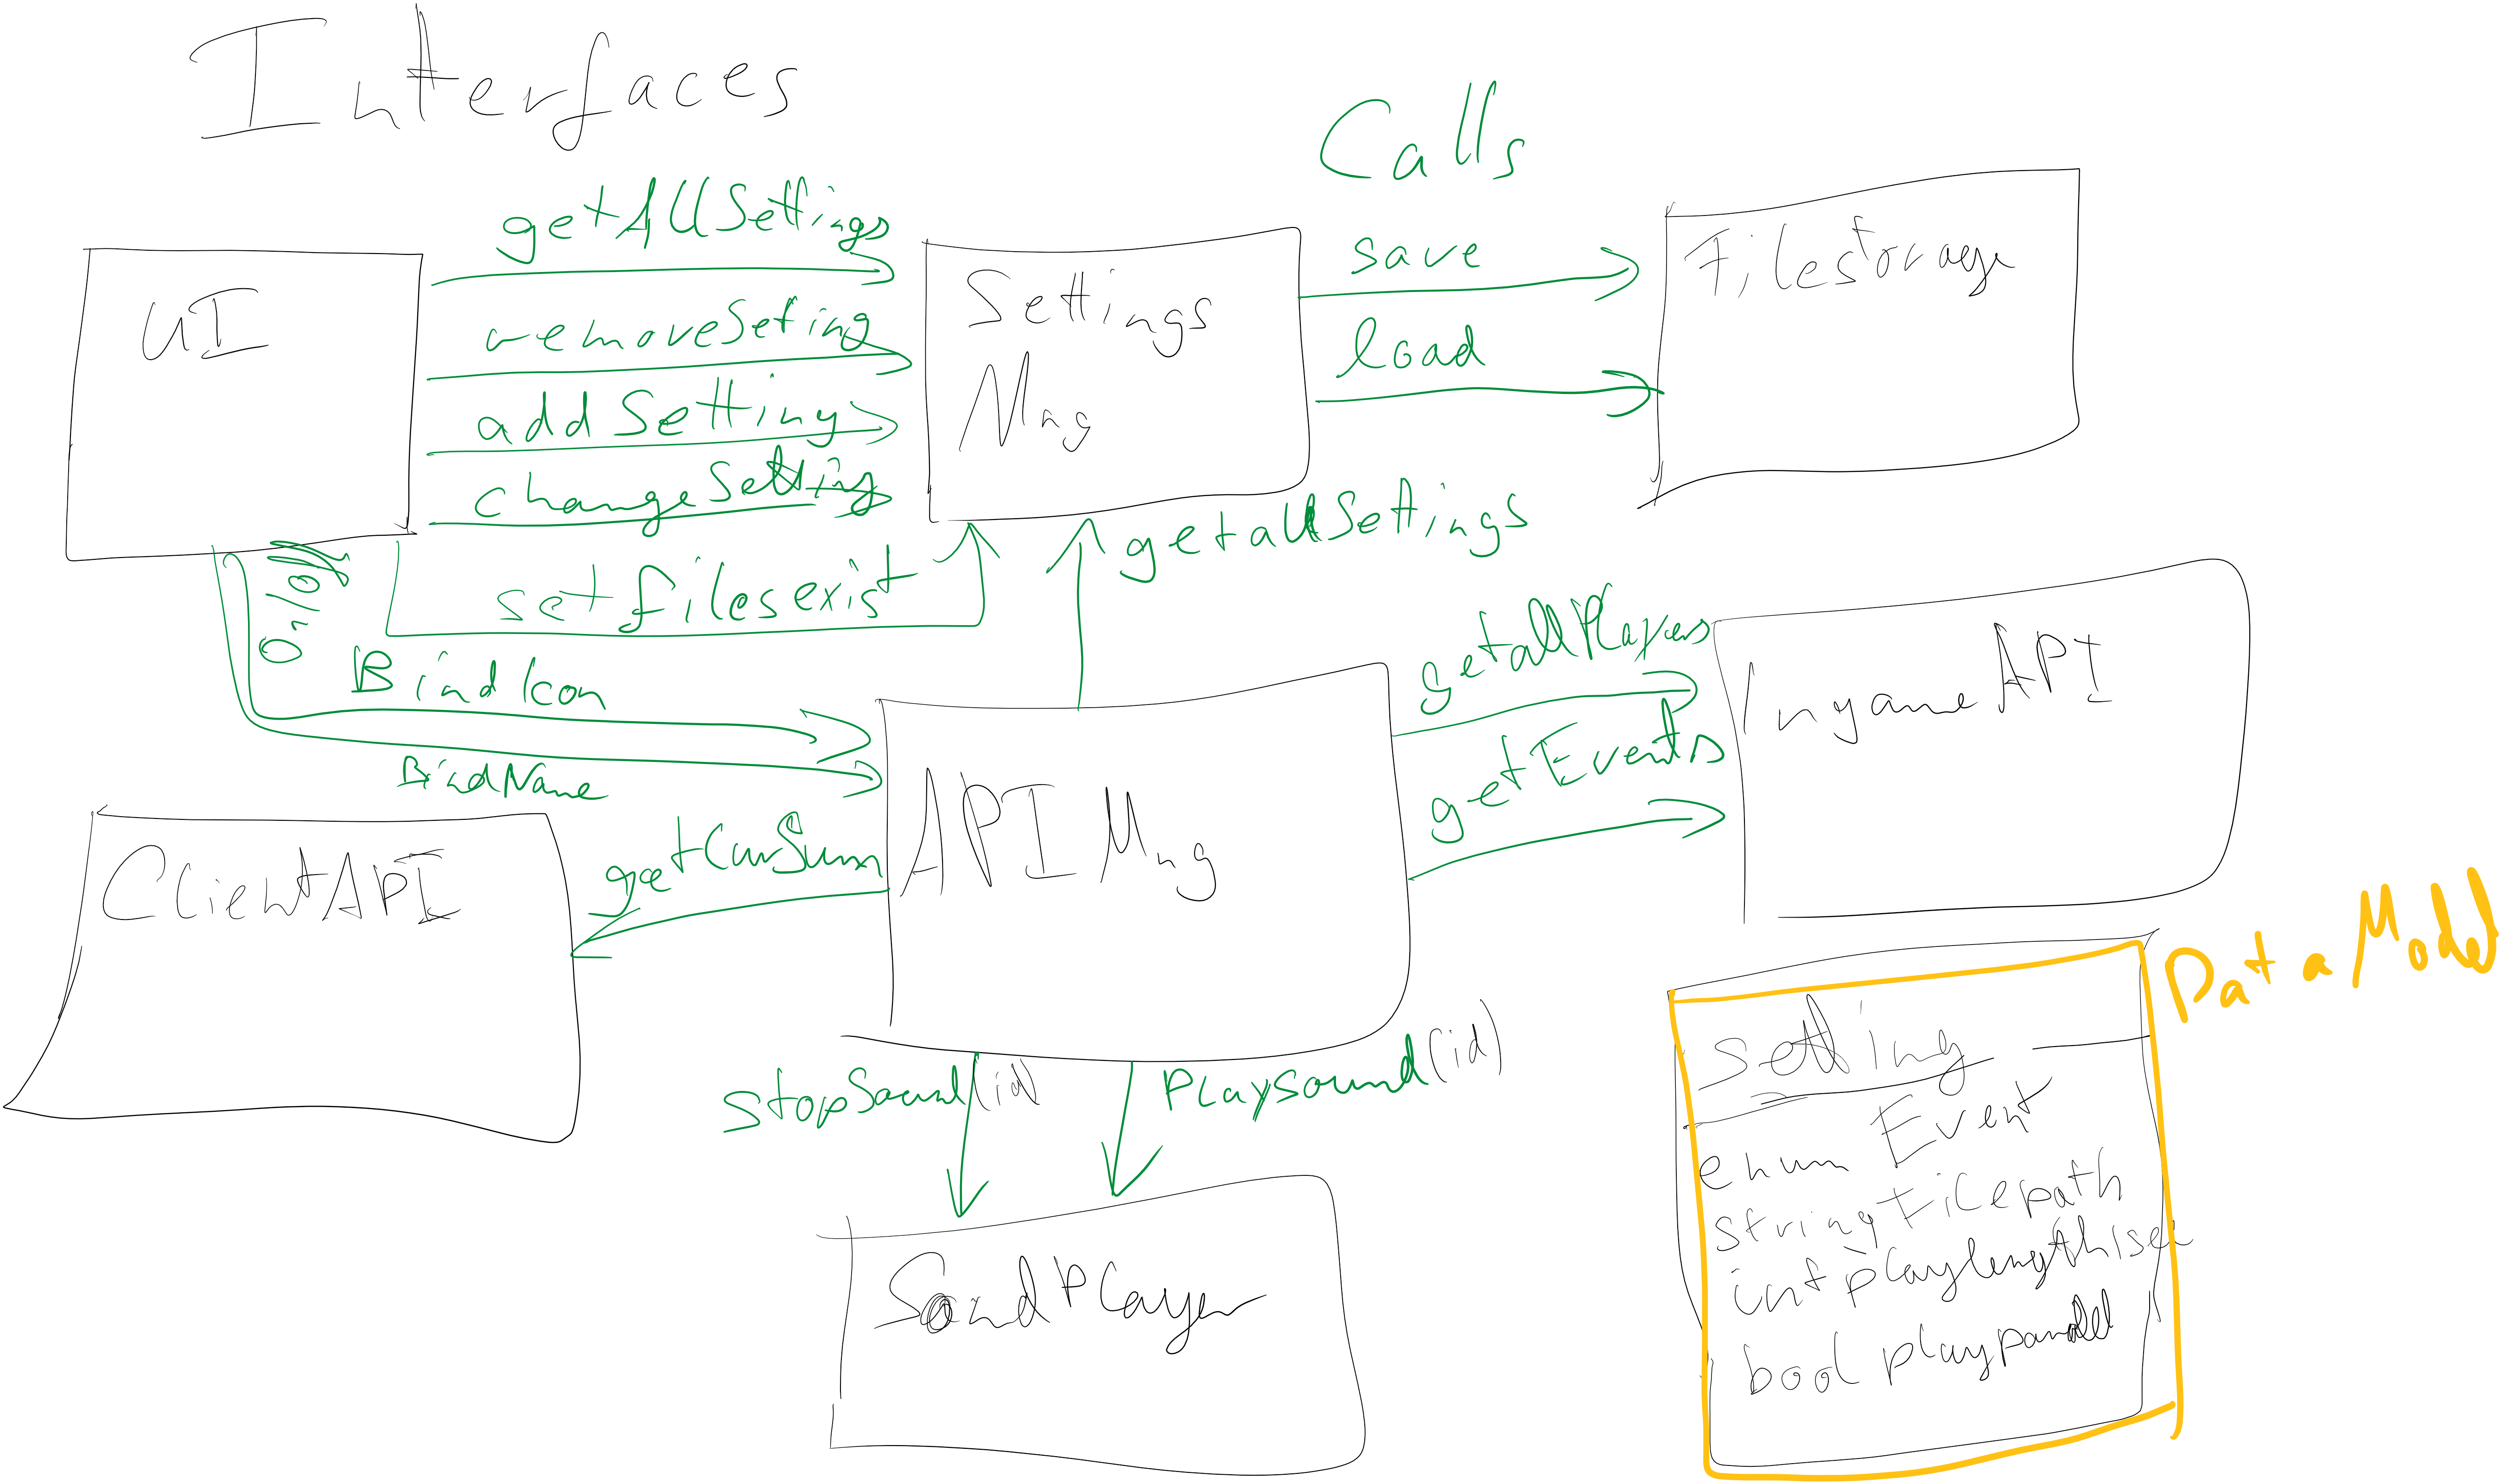 Interfaces
Calls
getAllSettings
removeSeting
addSetting
changeSetting
UI
Settings
Mng
save
load
Filestorage
setfilesexist
getallSettings
BindIcon
BindName
getallPlayers
getEvents
IngameAPI
ClientAPI
getCurSumm
API Mng
DataModel
stopSound(id)
PlaySound(id)
Setting
enum Event
string Filepath
int playlength
bool play
SoundPlayer